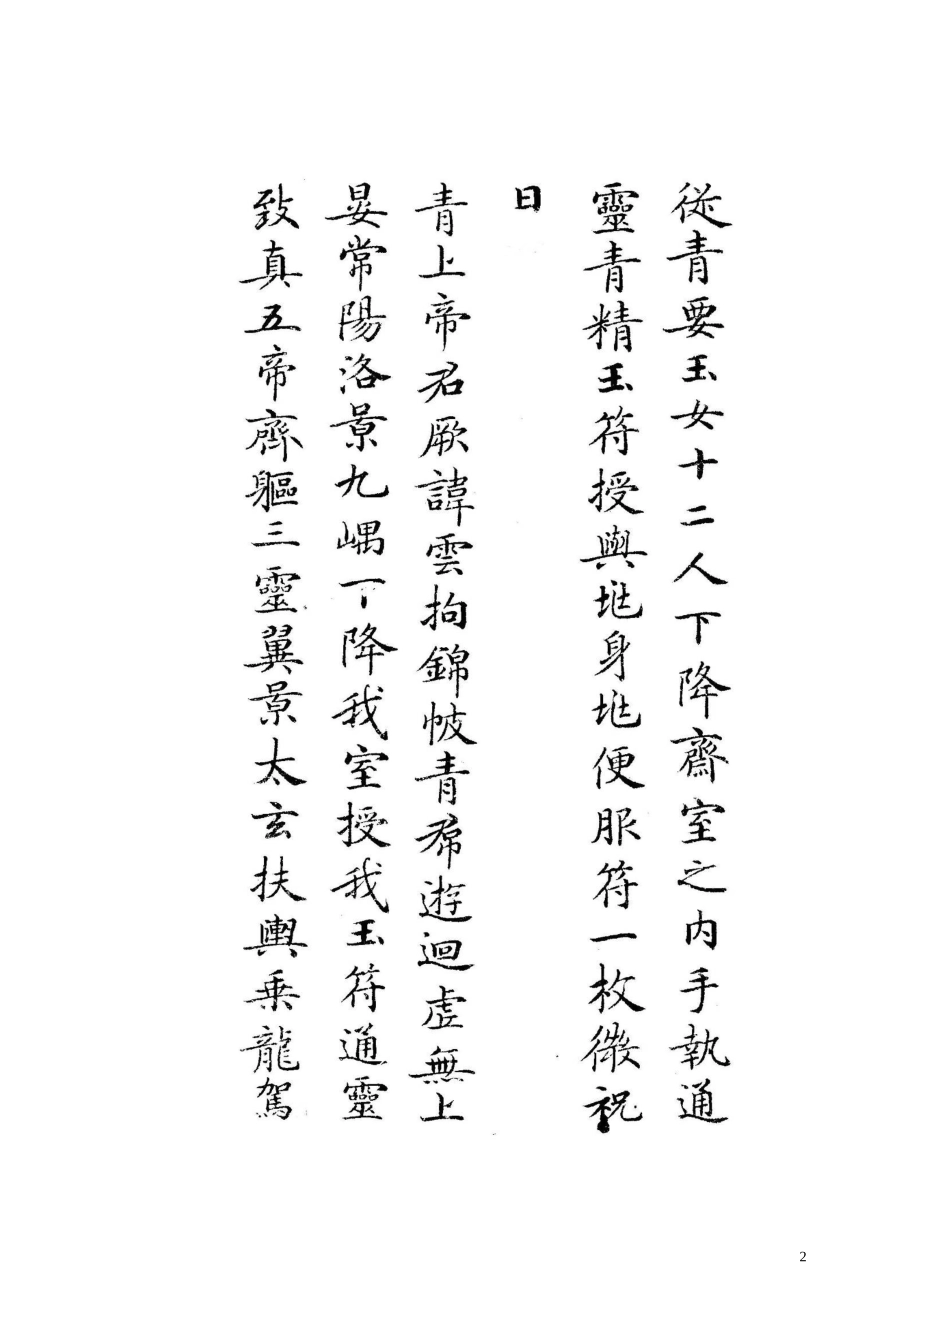 從青要玉女十二人下降齋室之內手執通
靈青精玉符授與兆身兆便服符一枚微祝
曰
青上帝君厥諱雲拘錦帔青帬遊迴虛無上
晏常陽洛景九嵎下降我室授我玉符通靈
致真五帝齊軀三靈翼景太玄扶輿乗龍駕
2